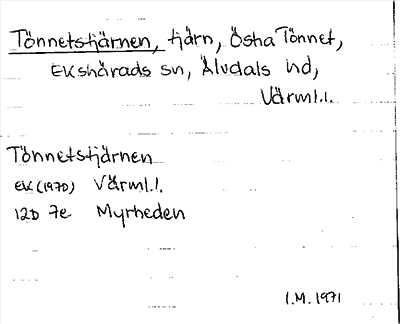 Tönnetstjärnen, tjärn, Östra Tönnet,
Ekshärads sn, Älvdals hd,
Värml.l.
Tönnetstjärnen
EK (1970) Värml.l.
12D 7e Myrheden
I.M. 1971